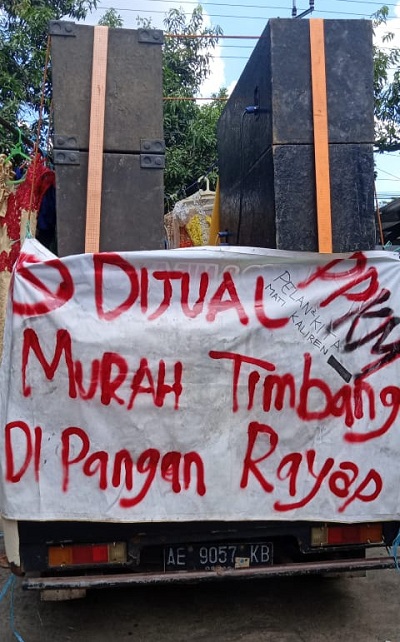 DIJUAL
PELAN² KITA
MATI KALIREN
MURAH Timbang
DI Pangan Rayap
AE 9057 KB